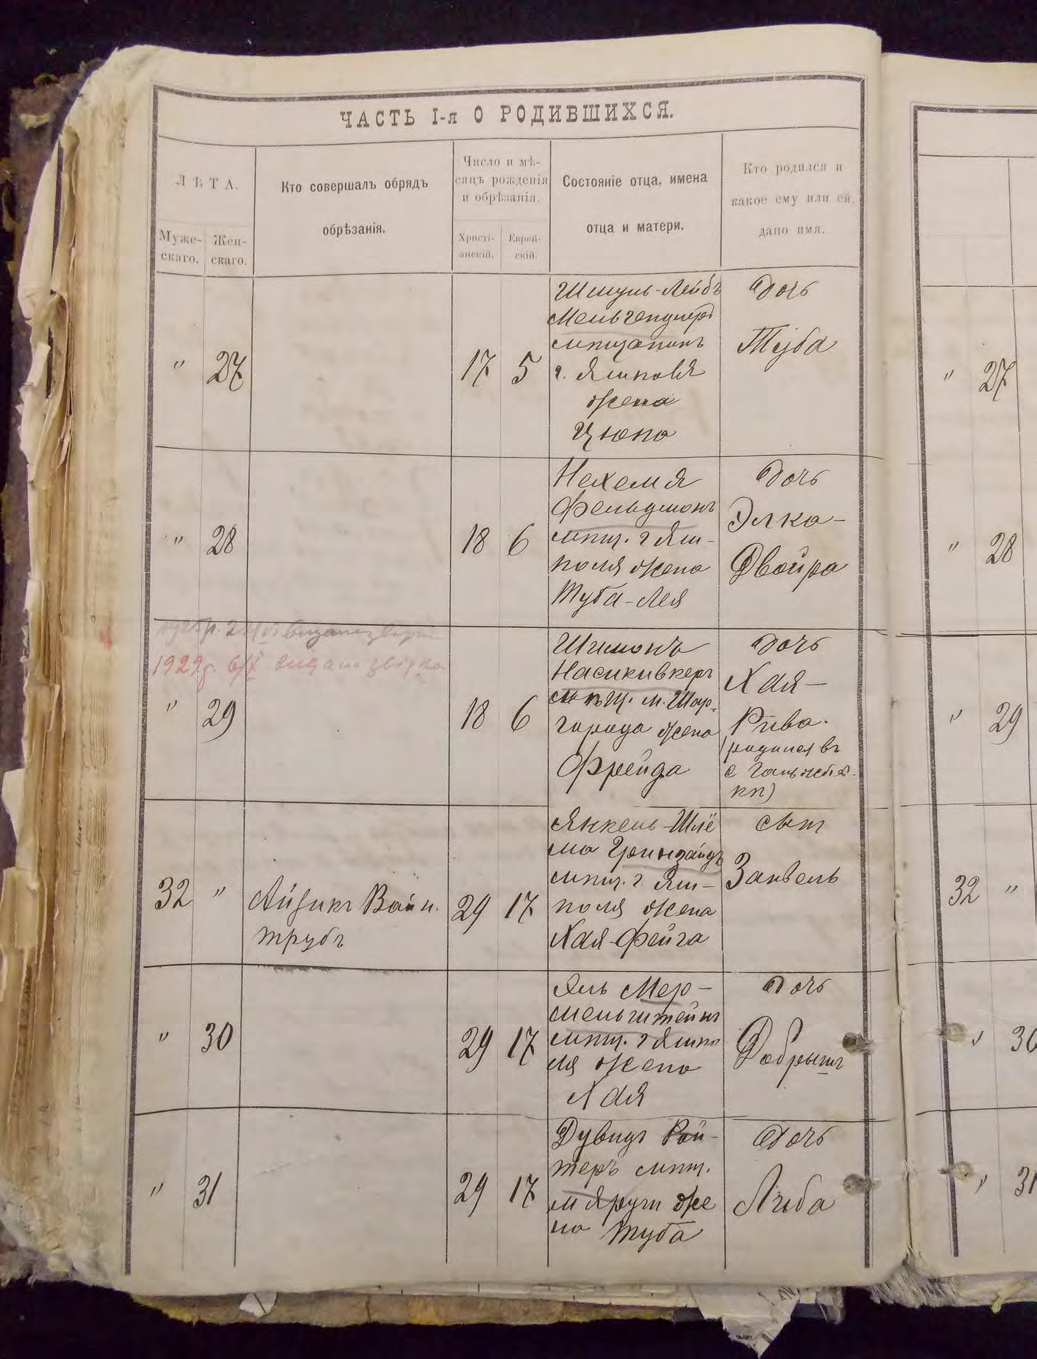 ЧАСТЬ I-я О РОДИВШИХСЯ.
ЛѢТА.
Муже-
скаго.
Жен-
скаго.
Кто совершалъ обрядъ
обрѣзанія.
Число и мѣ-
сяцъ рожденія
и обрѣзанія.
Христі-
анскій.
Еврей-
скій.
Состояніе отца, имена
отца и матери.
Кто родился и
какое ему или ей
дано имя.
" 27
17 5
Шмуль-Лейбъ
мѣщанинъ
г. Ямполя
жена
Ципа
Дочь
Туба
" 28
18 6
Нехемя
Фельдманъ
мѣщ. г Ям-
поля жена
Туба-Лея
Дочь
Элка-
Двойра
1929 6/X
" 29
18 6
Шимонъ
Насикивкеръ
мѣщ. м. Шар-
города жена
Фрейда
Дочь
Хая-
Рива.
(родился въ
с
32 "
Айзикъ Вайн.
трубъ
29 17
Янкель-Шлё
ма Гринзайдъ
мѣщ. г. Ям-
поля жена
Хая-Фейга
сынъ
Занвель
" 30
29 17
Мер-
мельштейнъ
мѣщ. г Ямпо
ля жена
Хая
Дочь
Добрышъ
" 31
29 17
Дувидъ Рай-
теръ мѣщ.
м Яруги же
на Туба
Дочь
Либа
" 27
" 28
" 29
32 "
" 30
" 31